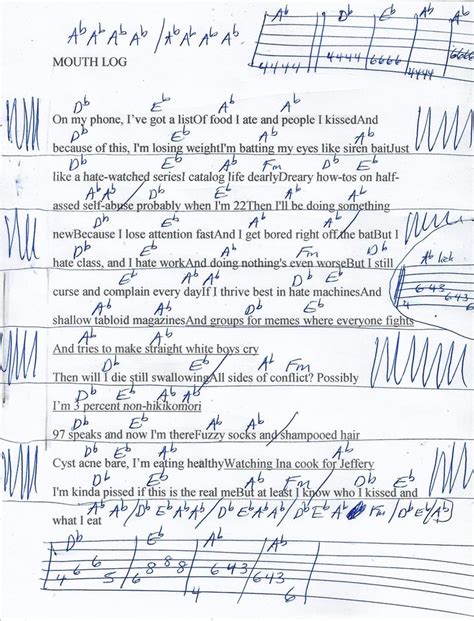 Ab Ab Ab Ab / Ab Ab Ab Ab
Ab Db Eb Ab Ab
4444 4444 6666 4444 6666
MOUTH LOG
Db Eb Ab Ab
On my phone, I've got a listOf food I ate and people I kissedAnd
Db Eb Ab Ab
because of this, I'm losing weightI'm batting my eyes like siren baitJust
Db Eb Ab Fm Db Eb
like a hate-watched seriesI catalog life dearlyDreary how-tos on half-
Ab Ab Db Eb
assed self-abuse probably when I'm 22Then I'll be doing something
Ab Ab Db Eb Ab Ab
newBecause I lose attention fastAnd I get bored right off the batBut I
Db Eb Ab Fm Db
hate class, and I hate workAnd doing nothing's even worseBut I still
Ab lick
4 643 643
Eb Ab Ab Db Eb
curse and complain every dayIf I thrive best in hate machinesAnd
Ab Ab Db Eb Ab Ab
shallow tabloid magazinesAnd groups for memes where everyone fights
Db Eb Ab Ab
And tries to make straight white boys cry
Db Eb Ab Fm
Then will I die still swallowingAll sides of conflict? Possibly
Db Eb Ab Ab
I'm 3 percent non-hikikomori
Db Eb Ab Ab
97 speaks and now I'm thereFuzzy socks and shampooed hair
Db Eb Ab Ab
Cyst acne bare, I'm eating healthyWatching Ina cook for Jeffery
Db Eb Ab Fm Db Eb
I'm kinda pissed if this is the real meBut at least I know who I kissed and
what I eat
Ab Ab / Db Eb Ab Ab / Db Eb Ab Ab / Db Eb Ab Fm / Db Eb Ab
Db Eb Ab Ab
4 6 6 5 6 8 8 8 4 643 643 6